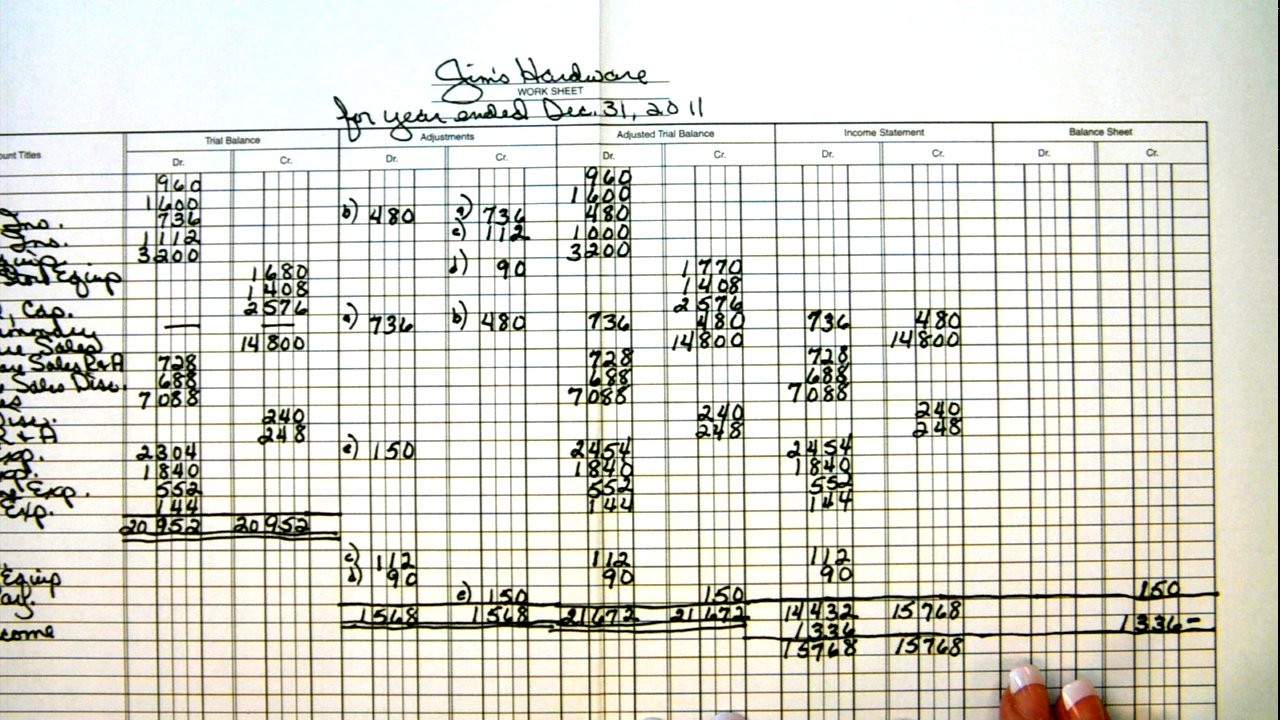 Jim's Hardware
WORK SHEET
for year ended Dec. 31, 2011
Trial Balance Adjustments Adjusted Trial Balance Income Statement Balance Sheet
Titles Dr. Cr. Dr. Cr. Dr. Cr. Dr. Cr. Dr. Cr.
960 960
1600 1600
Ins. 736 b) 480 a) 736 480
Ins. 1112 c) 112 1000
3200 3200
Store Equip 1680 d) 90 1770
1408 1408
Cap. 2576 2576
— — a) 736 b) 480 736 480 736 480
Sales 14800 14800 14800
Sales R+A 728 728 728
Sales Disc. 688 688 688
7088 7088 7088
Disc. 240 240 240
R + A 248 248 248
Exp. 2304 e) 150 2454 2454
Exp. 1840 1840 1840
Exp. 552 552 552
Exp. 144 144 144
20952 20952
c) 112 112 112
Equip d) 90 90 90
e) 150 150 150
1568 1568 21672 21672 14432 15768
1336 1336-
15768 15768